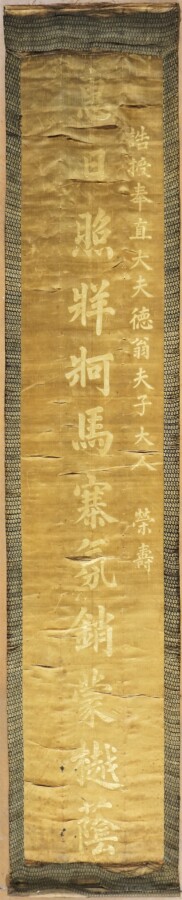 誥授奉直大夫德翁夫子大人 榮壽
惠日照牂牁馬寨氛銷蒙樾蔭